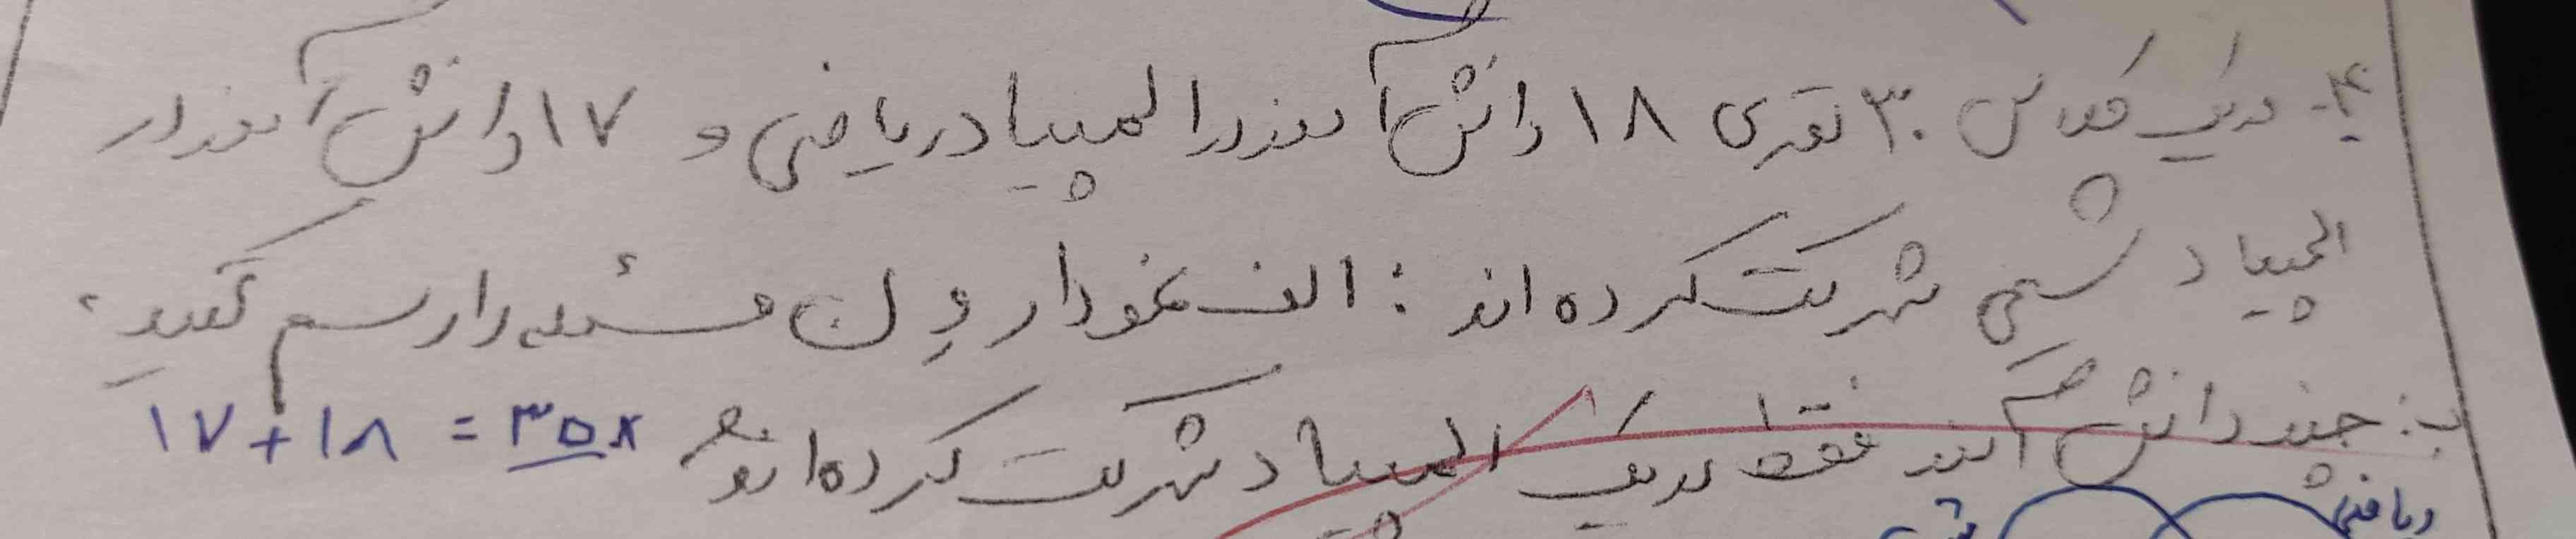 ۴- در یک کلاس ۳۰ نفری ۱۸ دانش آموز در المپیاد ریاضی و ۱۷ دانش آموز در
المپیاد شیمی شرکت کرده اند : الف نمودار وِن مسئله را رسم کنید.
ب: چند دانش آموز فقط در یک المپیاد شرکت کرده اند؟ ۱۷+۱۸ = ۳۵ x
ریاضی